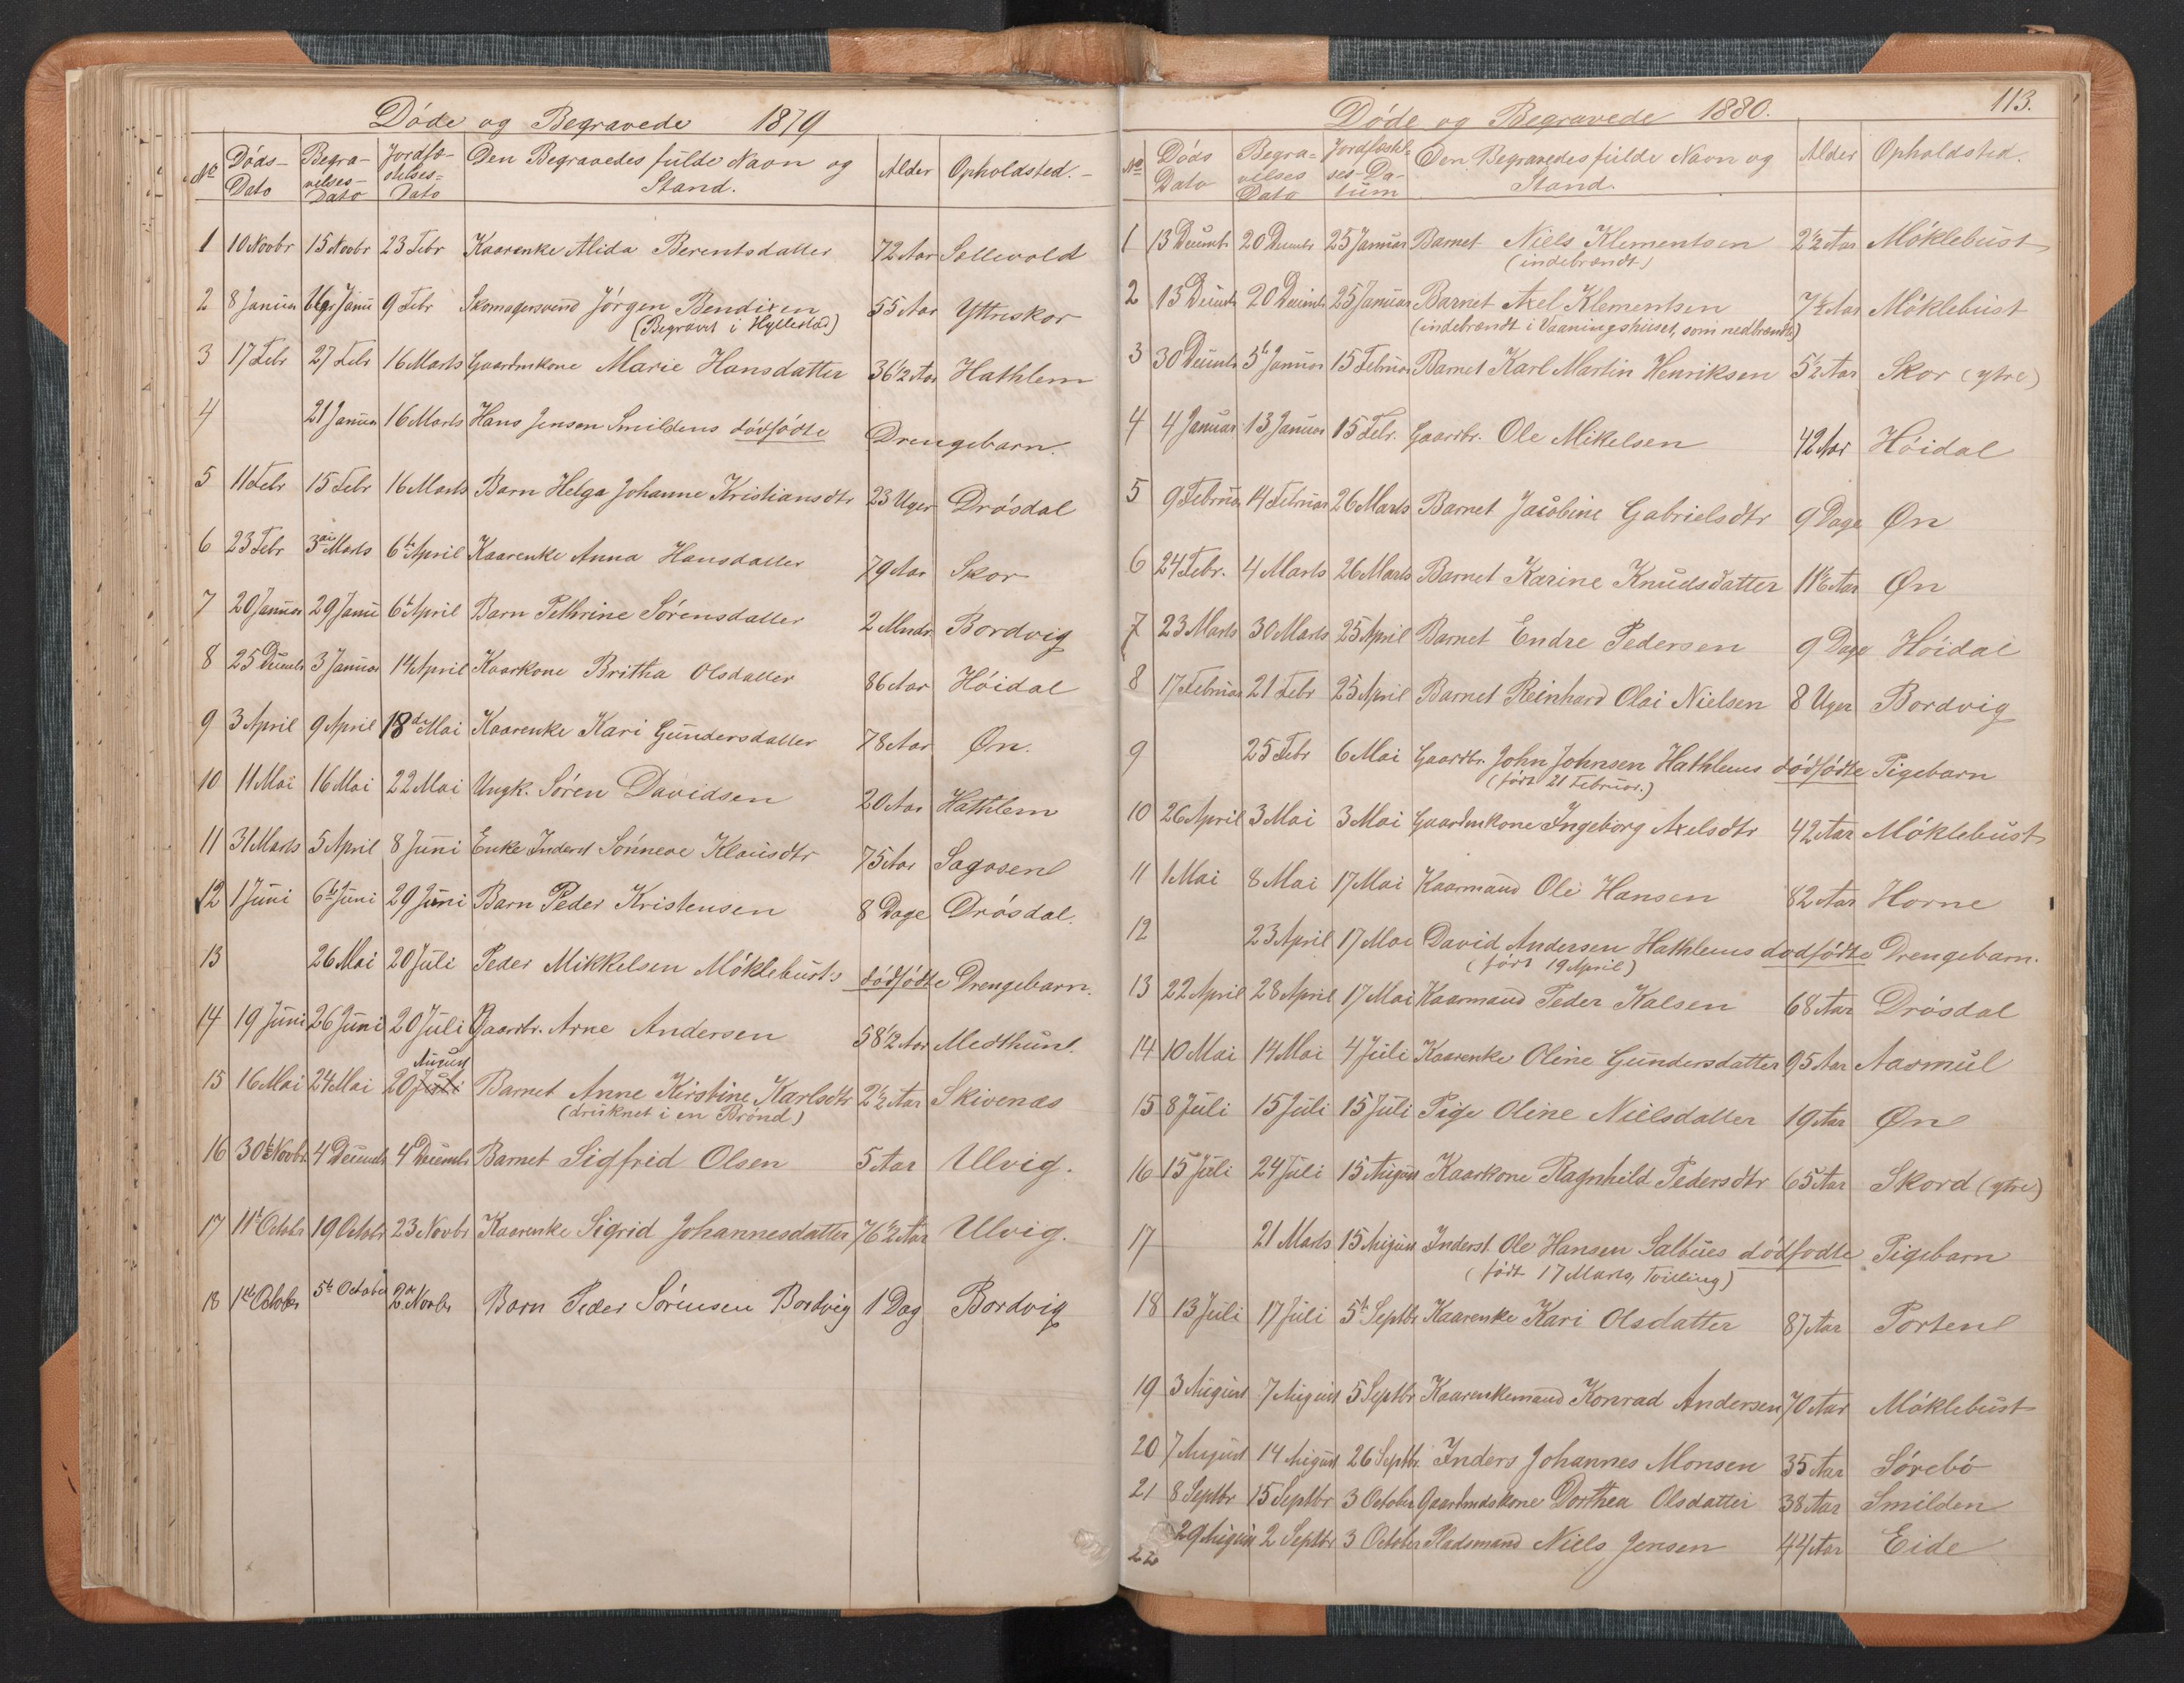 Døde og Begravede 1879
No Døds-Dato Begravelses-Dato Jordfæstelses-Dato Den Begravedes fulde Navn og Stand. Alder Opholdsted.-
1 10 Novbr 15 Novbr 23 Febr Kaarenke Alida Berentsdatter 72 Aar Sellevold
2 8 Januar Januar 9 Febr Skomagersvend Jørgen Bendixen 55 Aar Yttreskor
(Begravet i Hyllestad)
3 17 Febr 27 Febr 16 Marts Gaardmkone Marie Hansdatter 36 1/2 Aar Hathlem
4 21 Januar 16 Marts Hans Jensen Smildens dødfødte Drengebarn.
5 11 Febr 15 Febr 16 Marts Barn Helga Johanne Kristiansdtr 23 Uger Drøsdal
6 23 Febr 3die Marts 6te April Kaarenke Anna Hansdatter 79 Aar Skor
7 20 Januar 29 Janu 6te April Barn Pethrine Sørensdatter 2 Mndr Bordvig
8 25 Decembr 3 Januar 14 April Kaarkone Britha Olsdatter 86 Aar Høidal
9 3 April 9 April 18de Mai Kaarenke Kari Gundersdatter 78 Aar Øn.
10 11 Mai 16 Mai 22 Mai Ungk. Søren Davidsen 20 Aar Hathlem
11 31 Marts 5 April 8 Juni Enke Inderst Sønneve Klausdtr 75 Aar Sagosen
12 1 Juni 6te Juni 29 Juni Barn Peder Kristensen 8 Dage Drøsdal.
13 26 Mai 20 Juli Peder Mikkelsen Møklebusts dødfødte Drengebarn.
14 19 Juni 26 Juni 20 Juli Gaardbr. Arne Andersen 58 1/2 Aar Medthun.
August
15 16 Mai 24 Mai 20 Juli Barnet Anne Kirstine Karlsdtr 2 1/2 Aar Skivenæs
(drusknet i en Brønd)
16 30te Novbr 4 Decembr 4 Decembr Barnet Sigfrid Olsen 5 Aar Ulvig.
17 11te Octobr 19 Octobr 23 Novbr Kaarenke Sigrid Johannesdatter 76 1/2 Aar Ulvig.
18 1ste Octobr 5te October 2de Novbr Barn Peder Sørensen Bordvig 1 Dag Bordvig
Døde og Begravede 1880. 113.
No Døds Dato Begravelses Dato Jordfæstelses-Datum Den Begravedes fulde Navn og Stand. Alder Opholdsted.
1 13 Decembr 20 Decembr 25 Januar Barnet Niels Klementsen 2 1/2 Aar Møklebust
(indebrændt)
2 13 Decembr 20 Decembr 25 Januar Barnet Axel Klementsen 7 1/2 Aar Møklebust
(indebrændt i Vaaningshuset, som nedbrændte)
3 30 Decembr 5te Januar 15 Februar Barnet Karl Martin Henriksen 5 1/2 Aar Skor (ytre)
4 4 Januar 13 Januar 15 Febr. Gaardbr. Ole Mikelsen 42 Aar Høidal
5 9 Februar 14 Februar 26 Marts Barnet Jacobine Gabrielsdtr 9 Dage Øn
6 24 Febr. 4 Marts 26 Marts Barnet Karine Knudsdatter Aar Øn
7 23 Marts 30 Marts 25 April Barnet Endre Pedersen 9 Dage Høidal
8 17 Februar 21 Febr 25 April Barnet Reinhard Olai Nielsen 8 Uger Bordvig
9 25 Febr 6 Mai Gaardbr. John Johnsen Hathlems dødfødte Pigebarn
(født 21 Februar.)
10 26 April 3 Mai 3 Mai Gaardmkone Ingeborg Axelsdtr 42 Aar Møklebust
11 1 Mai 8 Mai 17 Mai Kaarmand Ole Hansen 82 Aar Horne
12 23 April 17 Mai David Andersen Hathlems dødfødte Drengebarn.
(født 19 April)
13 22 April 28 April 17 Mai Kaarmand Peder Kalsen 68 Aar Drøsdal
14 10 Mai 14 Mai 4 Juli Kaarenke Oline Gundersdatter 95 Aar Aarmul
15 8 Juli 15 Juli 15 Juli Pige Oline Nielsdatter 19 Aar Øn
16 15 Juli 24 Juli 15 August Kaarkone Ragnhild Pedersdtr 65 Aar Skord (ytre)
17 21 Marts 15 August Inderst Ole Hansen Salbues dødfødte Pigebarn
(født 17 Marts, Tvilling)
18 13 Juli 17 Juli 5te Septbr Kaarenke Kari Olsdatter 87 Aar Porten
19 3 August 7 August 5 Septbr Kaarenkemand Konrad Andersen 70 Aar Møklebust
20 7 August 14 August 26 Septbr Inders Johannes Monsen 35 Aar Sørebø
21 8 Septbr 15 Septbr 3 October Gaardmdskone Dorthea Olsdatter 38 Aar Smilden
22 29 August 2 Septbr 3 October Pladsmand Niels Jensen 44 Aar Eide